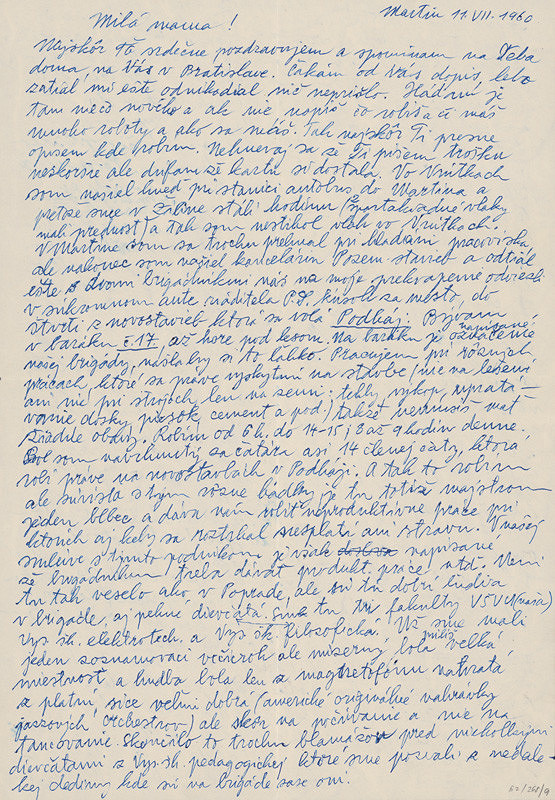 Martin 11.VII.1960
Milá mama!
Najskôr Ťa srdečne pozdravujem a spomínam na Teba
doma, na Vás v Bratislave. Čakám od Vás dopis, lebo
zatiaľ mi ešte odnikadiaľ nič neprišlo. Hádam je
tam niečo nového a ak nie napíš čo robíš a či máš
mnoho roboty a ako sa máš. Tak najskôr Ti presne
opíšem kde robím. Nehnevaj sa že Ti píšem trošku
neskoršie ale dúfam že kartu si dostala. Vo Vrútkach
som našiel hneď pri stanici autobus do Martina a
pretže sme v Žiline stáli hodinu (Spartakiadné vlaky
mali prednosť) a tak som nestihol vlak vo Vrútkach.
V Martine som sa trochu pri hľadaní pracoviska,
ale nakoniec som našiel kanceláriu Pozem. stavieb a odtiaľ
ešte s dvomi brigádnikmi nás na moje prekvapenie odviezli
v súkromnom aute riaditeľa P.S. kúsok za mesto, do
štvrti z novostavieb ktorá sa volá Podháj. Bývam
v baráku č. 17, až hore pod lesom, na baráku je označenie napísané
našej brigády, našla by si to ľahko. Pracujem pri rôznych
prácach, ktoré sa práve vyskytnú na stavbe (nie na lešení
ani nie pri strojoch len na zemi: tehly, výkop, upratá-
vanie dosky, piesok, cement a pod.) takže nemusíš mať
žiadne obavy. Robím od 6 h. do 14-15 j. 8 až 9 hodín denne.
Bol som navrhnutý za čatára asi 14 členej čaty, ktorá
robí práve na novostavbách v Podháji. A tak to robím
ale súvisia s tým rôzne je tu totiž majstrom
jeden blbec a dáva nám robiť neproduktívne práce pri
ktorých aj keby sa roztrhal nesplatí ani stravu. V našej
smluve s týmto podnikom je však napísané
že brigádnikom treba dávať produkt. práce atď. Není
tu tak veselo ako v Poprade, ale sú tu dobrí ľudia
v brigáde, aj pekné dievčatá. Sme tu tri fakulty VŠVU (naša)
Vys. šk. elektrotech. a Vys. šk. filosofická. Už sme mali
jeden soznamovací večierok ale mizerný, bola príliš veľká
miestnosť a hudba bola len z magnetofónu nahratá
z platní, síce veľmi dobrá (americké originálné nahrávky
jazzových orchestrov) ale skôr na počúvanie a nie na
tancovanie. Skončilo to trochu blamážou pred niekoľkými
dievčatami z Vys. šk. pedagogickej ktoré sme pozvali z neďale-
kej dediny kde sú na brigáde zase oni.
62/268/9